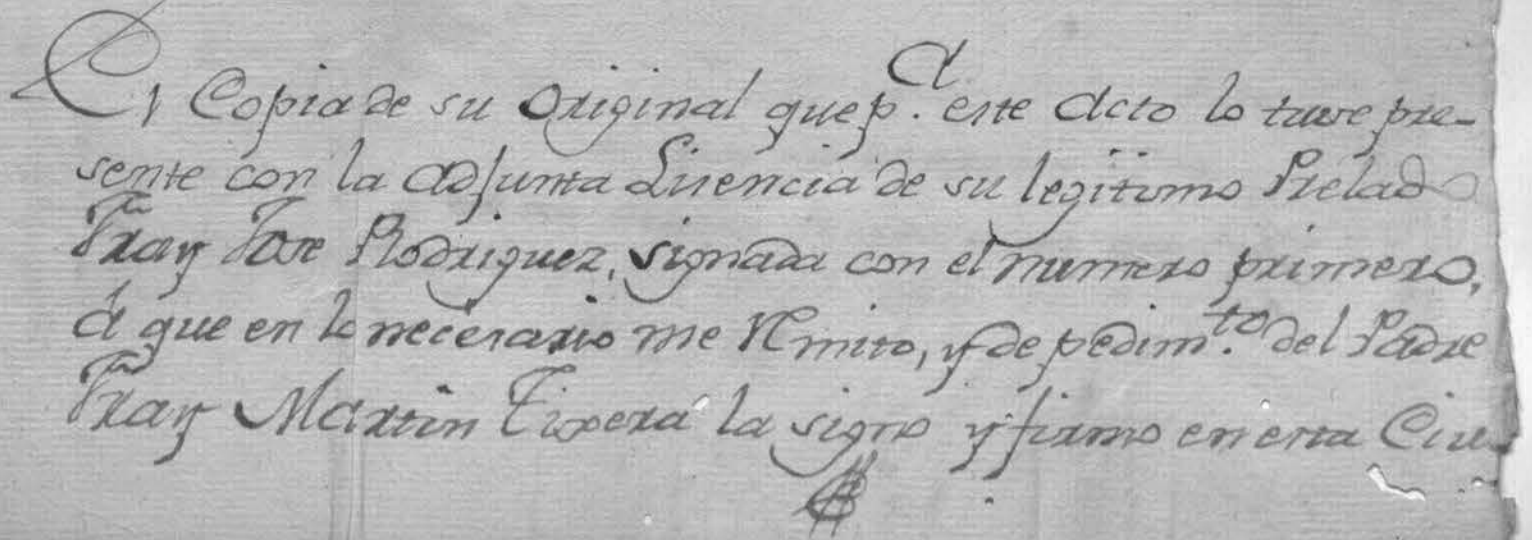 Es Copia de su Original que p.ª este Acto lo tuve pre-
sente con la Adjunta Lisencia de su legitimo Prelado
Fray Jose Rodriguez, signada con el numero primero,
á que en lo necesario me Remito, y de pedim.to del Padre
Fray Martin Tixera la signo y firmo en esta Ciu-